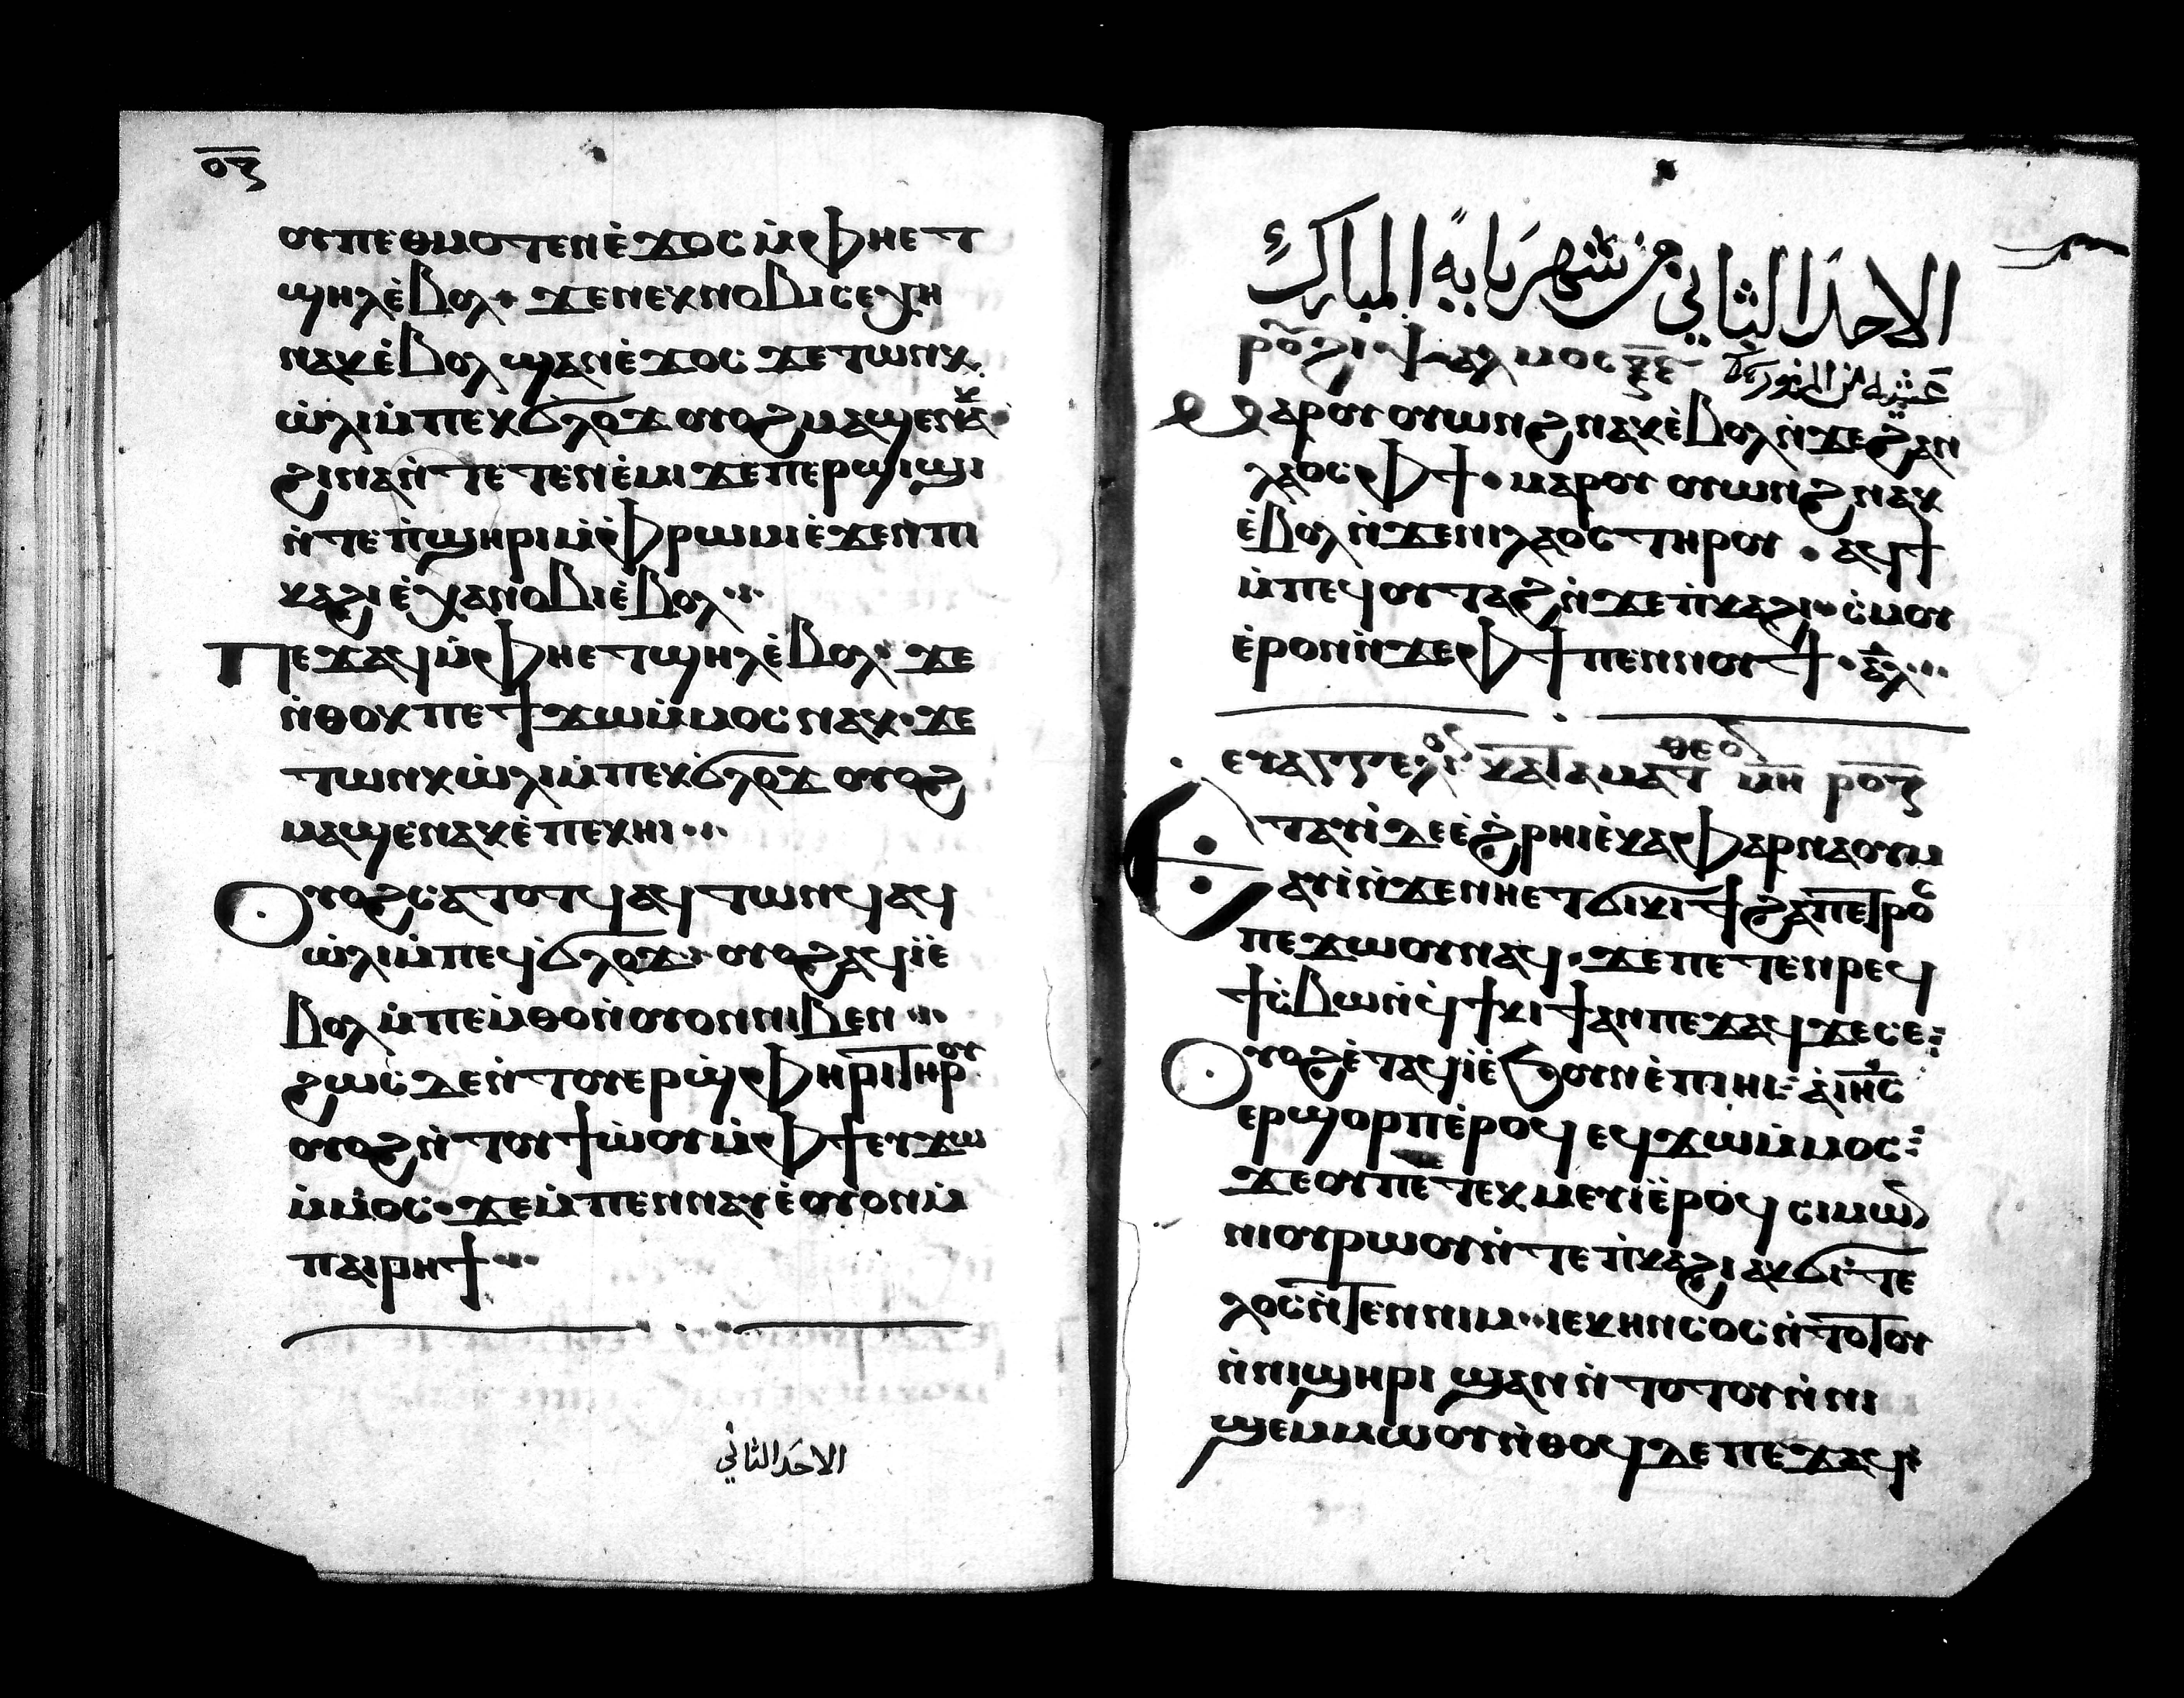 ⲟⲍ
ⲟⲩⲡⲉⲑⲙⲟⲧⲉⲛⲉ̀ϫⲟⲥ ⲙ̀ⲫⲏⲉⲧ
ϣⲏⲗⲉ̀ⲃⲟⲗ · ϫⲉⲛⲉⲕⲛⲟⲃⲓⲥⲉⲭⲏ
ⲛⲁⲕⲉ̀ⲃⲟⲗ ϣⲁⲛⲉ̀ϫⲟⲥ ϫⲉⲧⲱⲛⲕ
ⲱ̀ⲗⲓⲙ̀ⲡⲉⲕϭⲗⲟϫ ⲟⲩⲟϩ ⲙⲁϣⲉⲛⲁⲕ
ϩⲓⲛⲁⲛ̀ⲧⲉⲧⲉⲛⲉ̀ⲙⲓ ϫⲉⲡⲉⲣϣⲓϣⲓ
ⲛ̀ⲧⲉⲡ̀ϣⲏⲣⲓⲙ̀ⲫⲣⲱⲙⲓⲉ̀ϫⲉⲛⲡⲓ
ⲕⲁϩⲓⲉ̀ⲭⲁⲛⲟⲃⲓⲉ̀ⲃⲟⲗ
ⲡⲉϫⲁϥⲙ̀ⲫⲏⲉⲧϣⲏⲗⲉ̀ⲃⲟⲗ · ϫⲉ
ⲛ̀ⲑⲟⲕⲡⲉϯϫⲱⲙ̀ⲙⲟⲥ ⲛⲁⲕ · ϫⲉ
ⲧⲱⲛⲕⲱ̀ⲗⲓⲙ̀ⲡⲉⲕϭⲗⲟϫ ⲟⲩⲟϩ
ⲙⲁϣⲉⲛⲁⲕⲉ̀ⲡⲉⲕⲏⲓ
ⲟⲩⲟϩⲥⲁⲧⲟⲧϥ ⲁϥⲧⲱⲛϥ ⲁϥ
ⲱ̀ⲗⲓⲙ̀ⲡⲉϥϭⲗⲟϫ · ⲟⲩⲟϩ ⲁϥⲓ̀ⲉ̀
ⲃⲟⲗ ⲙ̀ⲡⲉⲙ̀ⲑⲟⲛ̀ⲟⲩⲟⲛⲛⲓⲃⲉⲛ
ϩⲱⲥ ϫⲉⲛ̀ⲧⲟⲩⲉⲣϣ̀ⲫⲏⲣⲓⲧⲏⲣⲟⲩ
ⲟⲩⲟϩⲛ̀ⲧⲟⲩϯⲱ̀ⲟⲩⲙ̀ⲫϯⲉⲩϫⲱ
ⲙ̀ⲙⲟⲥ · ϫⲉⲙ̀ⲡⲉⲛⲛⲁⲩⲉ̀ⲟⲩⲟⲛⲙ̀
ⲡⲁⲓⲣⲏϯ
الاحد الثاني
الاحد الثاني من شهر بابه المبارك
ⲙⲁⲣⲟⲩⲟⲩⲱⲛϩ ⲛⲁⲕⲉ̀ⲃⲟⲗ ⲛ̀ϫⲉϩⲁⲛ
ⲗⲁⲟⲥ ⲫϯ · ⲙⲁⲣⲟⲩ ⲟⲩⲱⲛϩ ⲛⲁⲕ
ⲉ̀ⲃⲟⲗ ⲛ̀ϫⲉⲛⲓⲗⲁⲟⲥ ⲧⲏⲣⲟⲩ · ⲁϥϯ
ⲙ̀ⲡⲉϥⲟⲩⲧⲁϩ ⲛ̀ϫⲉⲡ̀ⲕⲁϩⲓ · ⲥ̀ⲙⲟⲩ
ⲉ̀ⲣⲟⲛⲛ̀ϫⲉⲫϯⲡⲉⲛⲛⲟⲩϯ · ⲁⲗ
ⲉⲩⲁⲅⲅⲉⲗⲓⲟ ⲕⲁⲧⲁⲙⲁⲧⲑⲉⲟ ⲙⲏ ⲣⲟⲍ
ⲉⲧⲁⲩⲓ̀ ⲇⲉⲉ̀ϩ̀ⲣⲏⲓⲉ̀ⲕⲁⲫⲁⲣⲛⲁⲟⲩⲙ
ⲁⲩⲓ̀ ⲛ̀ϫⲉⲛⲏⲉⲧϭⲓⲕⲓϯ ϩⲁⲡⲉⲧⲣⲟⲥ
ⲡⲉϫⲱⲟⲩⲛⲁϥ · ϫⲉⲡⲉⲧⲉⲛⲣⲉϥ
ϯⲥ̀ⲃⲱⲛ̀ϥ̀ϯⲕⲓϯⲁⲛⲡⲉϫⲁϥ ϫⲉⲥⲉ
ⲟⲩⲟϩⲉ̀ⲧⲁϥⲓ̀ⲉ̀ϧⲟⲩⲛⲉ̀ⲡⲓⲏⲓ · ⲁ̀ⲓⲏⲥ
ⲉⲣϣⲟⲣⲡⲉ̀ⲣⲟϥ ⲉϥϫⲱⲙ̀ⲙⲟⲥ
ϫⲉⲟⲩⲡⲉⲧⲉⲕⲙⲉⲩⲓ̀ⲉ̀ⲣⲟϥ ⲥⲓⲙⲱ
ⲛⲓⲟⲩⲣⲱⲟⲩⲛ̀ⲧⲉⲡ̀ⲕⲁϩⲓ ⲁⲩϭⲓⲧⲉ
ⲗⲟⲥⲛ̀ⲧⲉⲛⲛⲓⲙ ⲓⲉⲕⲏⲛⲥⲟⲥ ⲛ̀ⲧⲟⲧⲟⲩ
ⲛ̀ⲛⲓϣⲏⲣⲓ ϣⲁⲛⲛ̀ⲧⲟⲧⲟⲩⲛ̀ⲛⲓ
ϣⲉⲙⲙⲱⲟⲩ ⲛ̀ⲑⲟϥⲇⲉ ⲡⲉϫⲁϥ